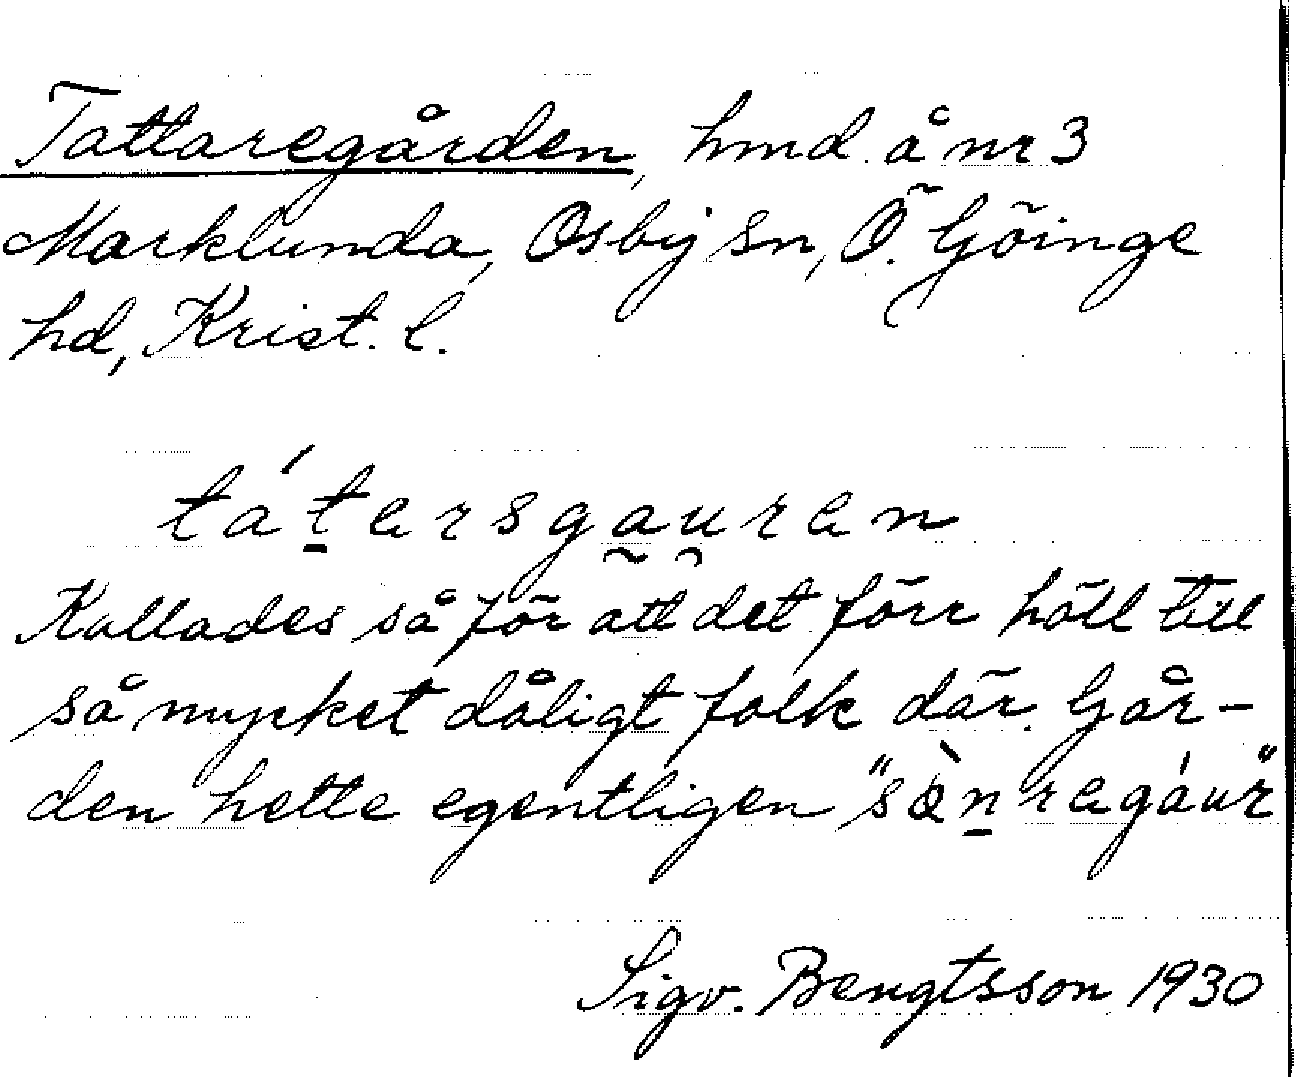 Tattaregården, hmd. å nr 3
Marklunda, Osby sn, Ö. Göinge
hd, Krist. l.
tát̲ersga̰u̯ren
Kallades så för att det förr höll till
så mycket dåligt folk där. Går-
den hette egentligen "sòn̲regáur"
Sigv. Bengtsson 1930